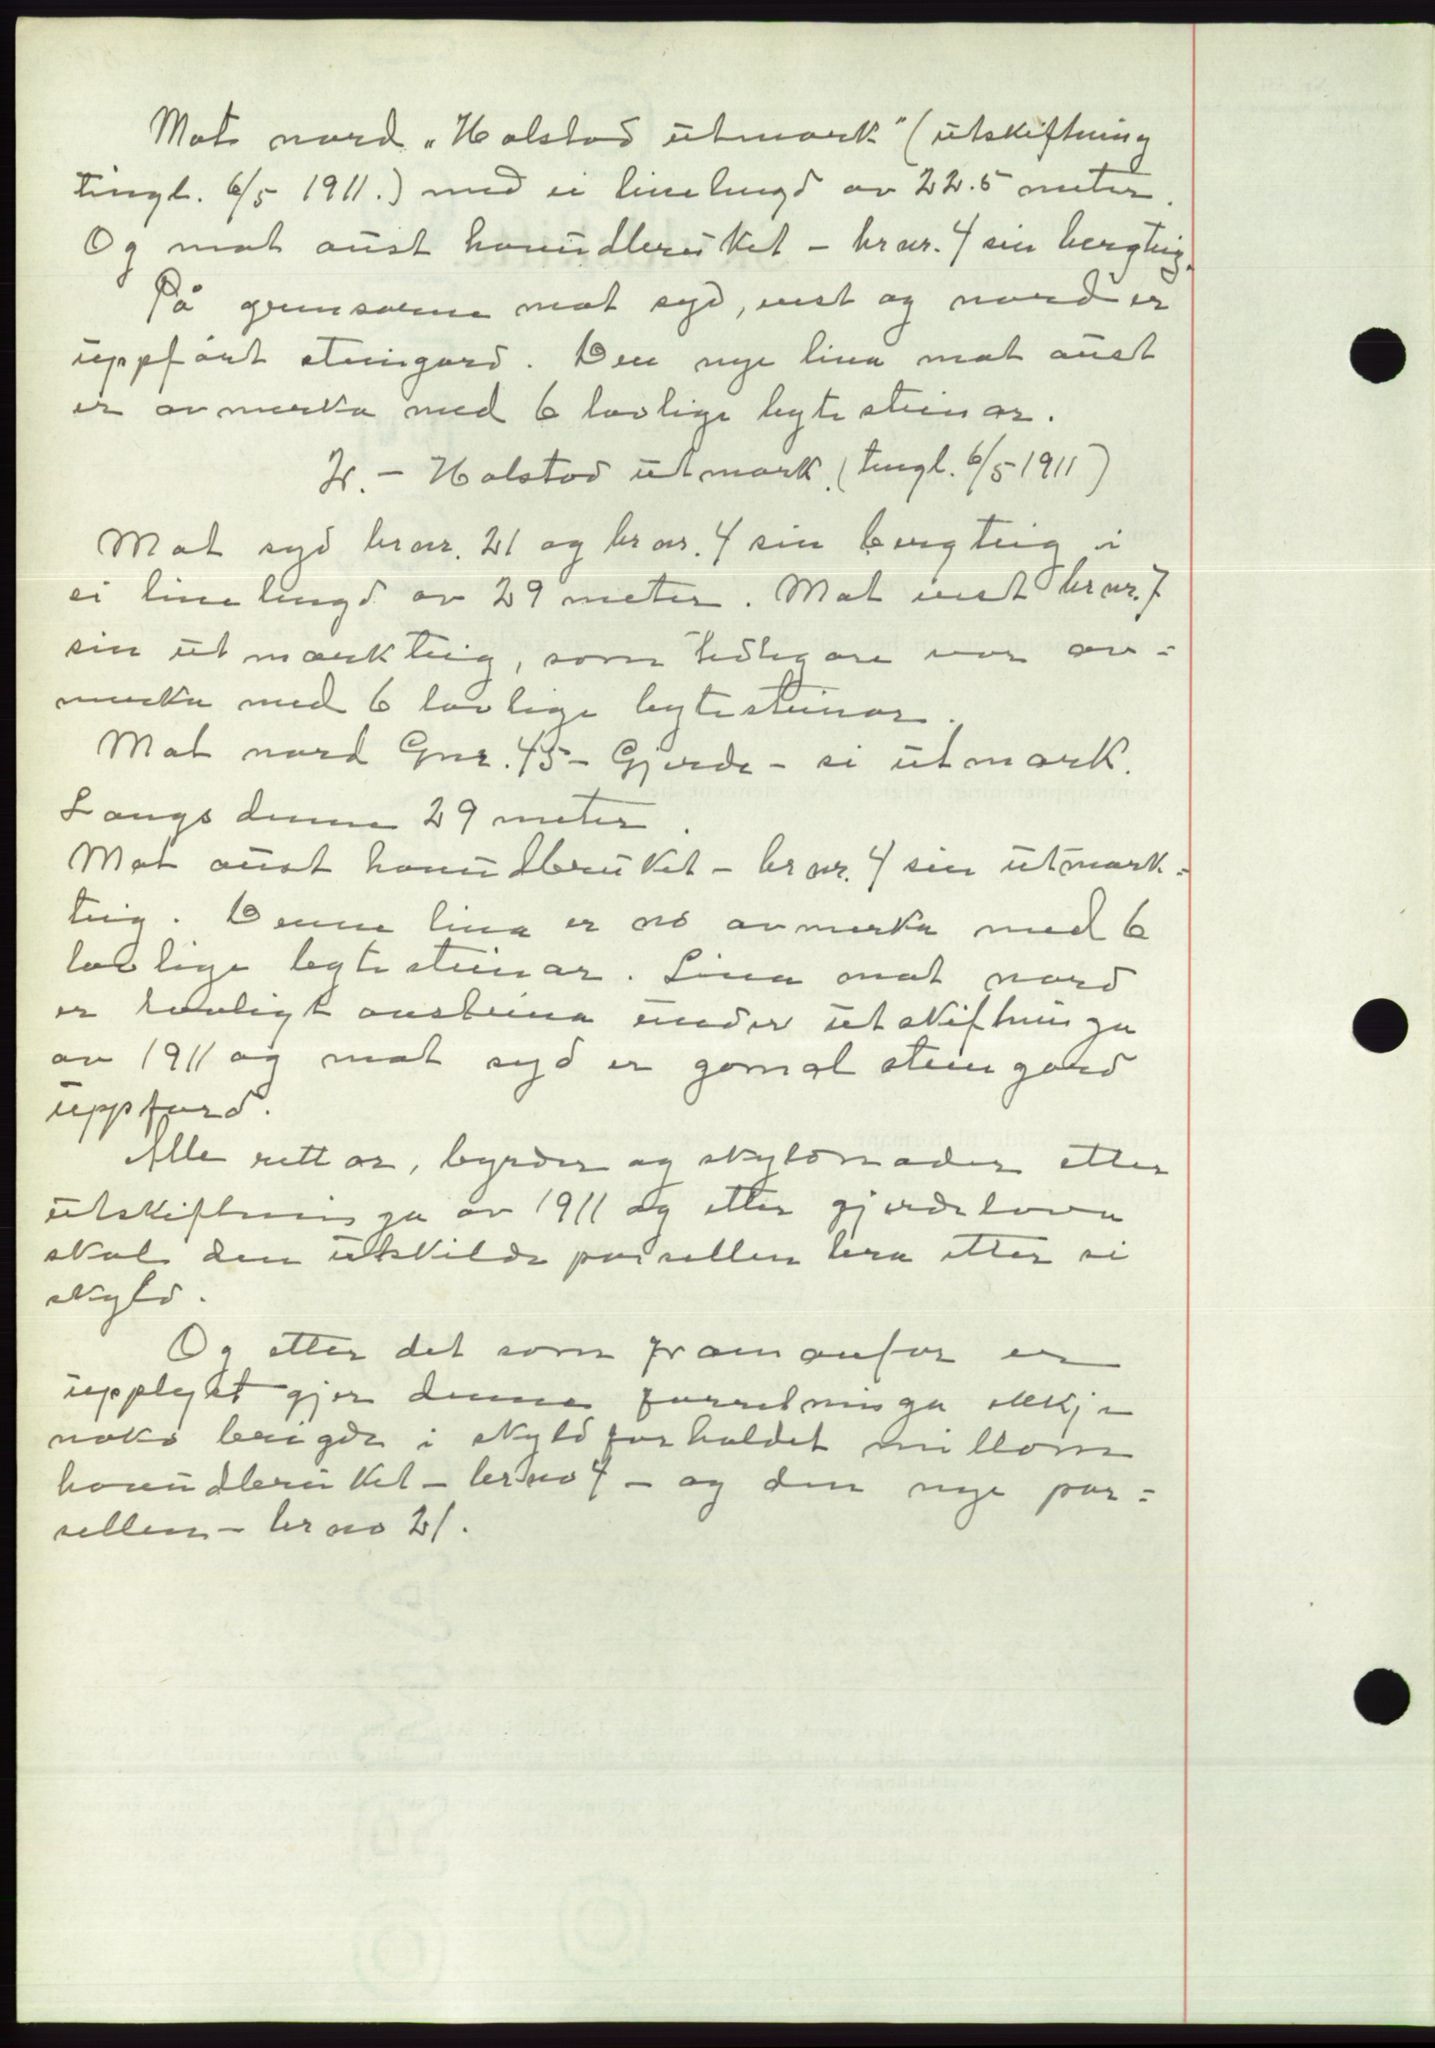 Mot nord „Holstad utmark" (utskiftning
tingl. 6/5 1911.) med ei linelengd av 22.5 meter.
Og mot aust hovudbruket – br nr. 4 sin bergteig.
På grensorne mot syd, vest og nord er
uppført steingard. Den nye lina mot aust
er avmerka med 6 lovlige bytesteinar.
2. – Holstad utmark. (tingl. 6/5 1911)
Mot syd br nr. 21 og br nr. 4 sin bergteig i
ei linelengd av 29 meter. Mot vest br nr. 7
sin utmarkteig, som tidligare var av=
merka med 6 lovlige bytesteinar.
Mot nord Gnr. 45 – Gjerde – si utmark.
Langs denne 29 meter.
Mot aust hovudbruket – br nr. 4 sin utmark=
teig. Denne lina er no avmerka med 6
lovlige bytesteinar. Lina mot nord
er lovligt under utskiftninga
av 1911 og mot syd er gomol steingard
uppførd.
Alle rettar, byrder og skyldnader etter
utskiftninga av 1911 og etter gjerdelova
skal den utskilde parsellen bra etter si
skyld.
Og etter det som framanfor er
upplyst gjer denne forretninga ikkje
noko brigde i skyldforholdet millom
hovudbruket – br no 4 – og den nye par=
sellen – br no 21.